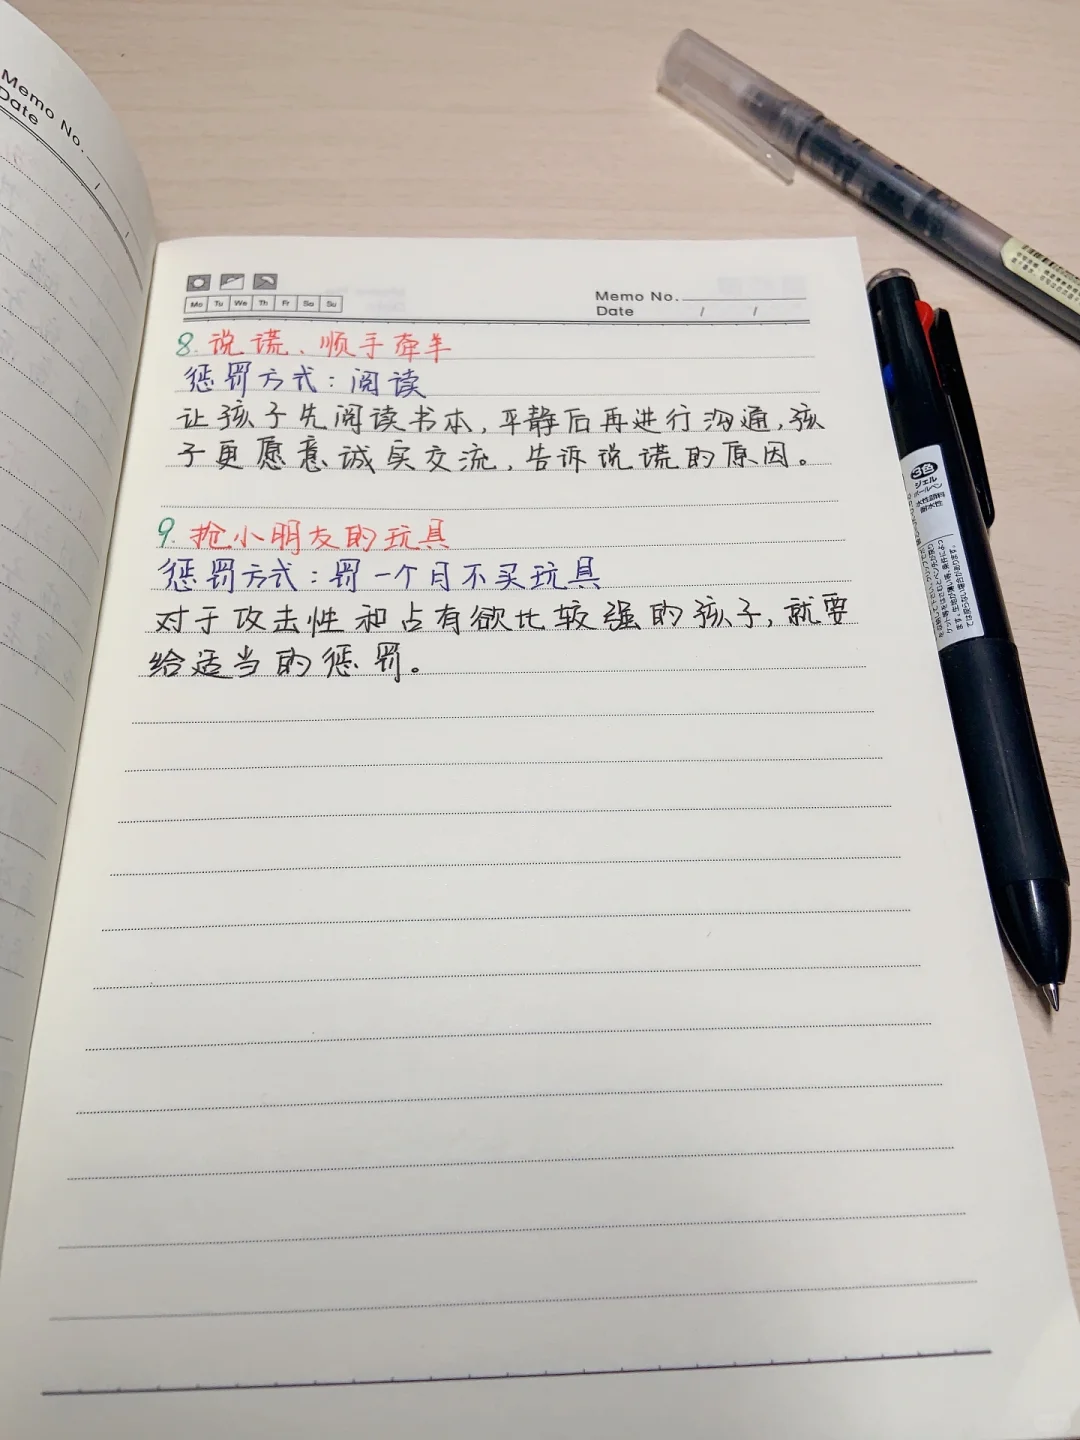 Memo No.
Date
Mo Tu We Th Fr Sa Su
Memo No.
Date / /
8. 说谎、顺手牵羊
惩罚方式：阅读
让孩子先阅读书本，平静后再进行沟通，孩
子更愿意诚实交流，告诉说谎的原因。
9. 抢小朋友的玩具
惩罚方式：罚一个月不买玩具
对于攻击性和占有欲比较强的孩子，就要
给适当的惩罚。
3色
ジェル
ボールペン
水性顔料
耐水性